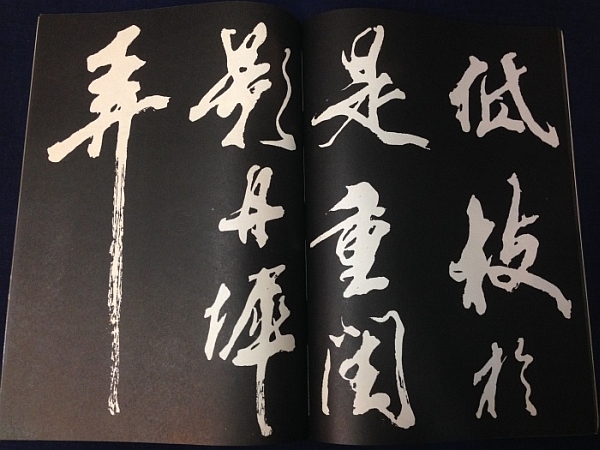 低枝於
是重閨
影丹墀
弄